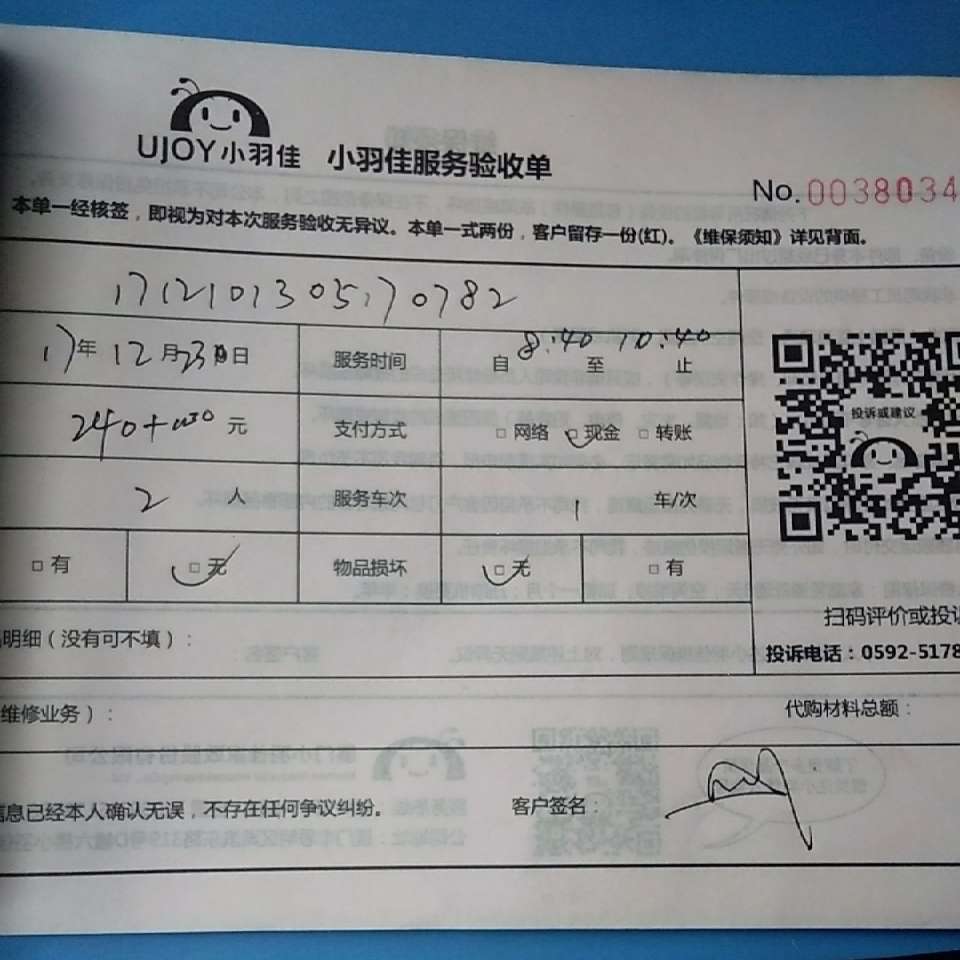 UJOY小羽佳 小羽佳服务验收单
No.0038034
本单一经核签，即视为对本次服务验收无异议。本单一式两份，客户留存一份(红)。《维保须知》详见背面。
1712101305170782
17年12月23日 服务时间 自8:40至10:40止
240+ 元 支付方式 □网络 □现金 □转账
投诉或建议
2人 服务车次 1车/次
□有 □无 物品损坏 □无 □有
扫码评价或投诉
明细（没有可不填）：
投诉电话：0592-5178
维修业务）： 代购材料总额：
信息已经本人确认无误，不存在任何争议纠纷。 客户签名：